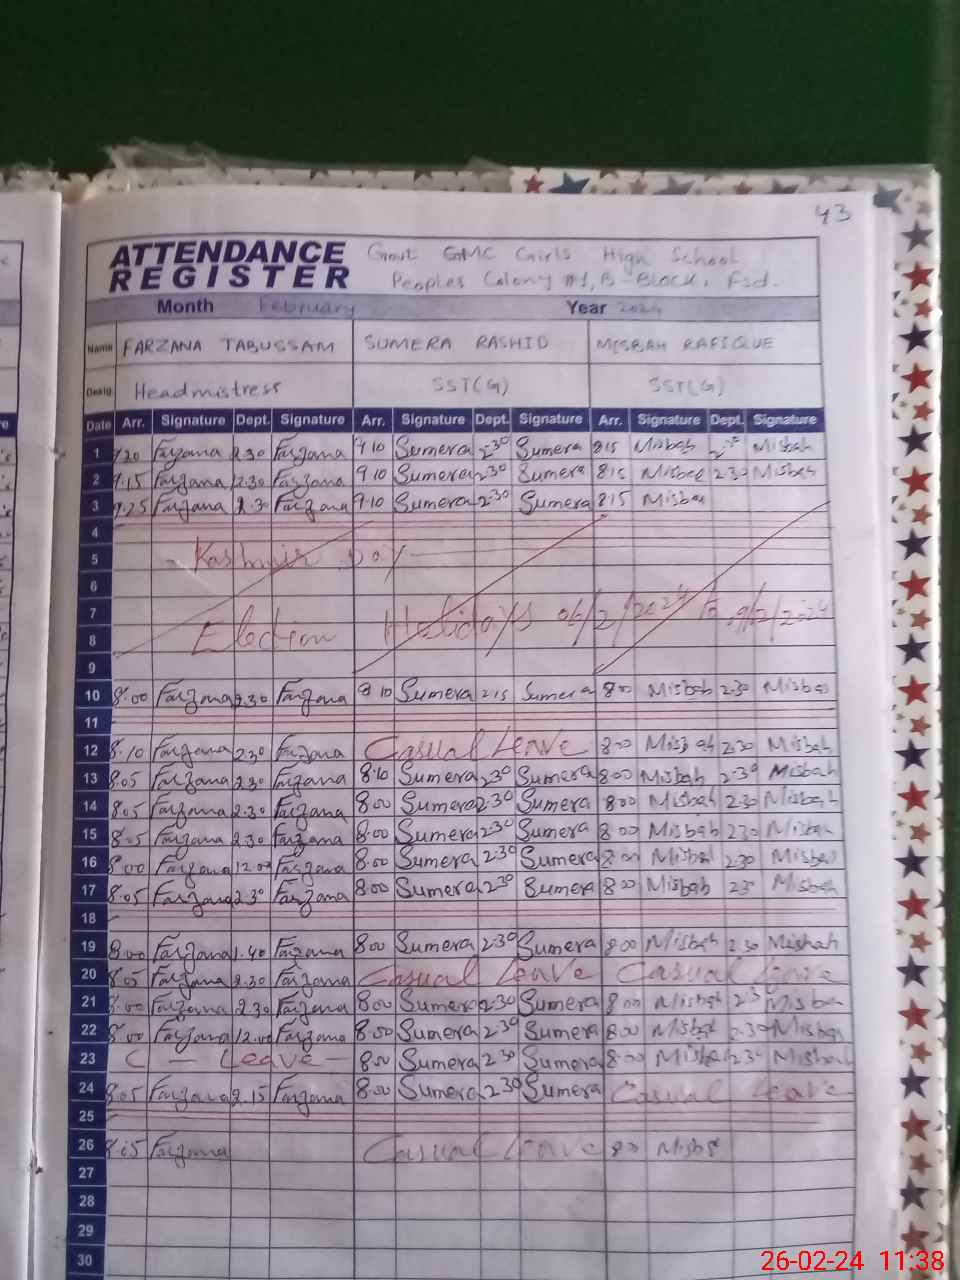 43
ATTENDANCE REGISTER Govt GMC Girls High School
Peoples Colony #1, B-Block, Fsd.
Month February Year 2024
Name FARZANA TABUSSAM SUMERA RASHID MISBAH RAFIQUE
Desig Headmistress SST(G) SST(G)
Date Arr. Signature Dept. Signature Arr. Signature Dept. Signature Arr. Signature Dept. Signature
1 Farzana 2.30 Farzana 9 10 Sumera 2:30 Sumera 8 15 Misbah Misbah
2 9.15 Farzana 2.30 Farzana 9 10 Sumera 2:30 Sumera 8 15 Misbah 2 30 Misbah
3 9.25 Farzana 2.30 Farzana 9 10 Sumera 2:30 Sumera 8 15 Misbah
4
5 Kashmir Day
6
7 Election Holidays 06/2/2024 To 9/2/2024
8
9
10 8:00 Farzana 2.30 Farzana 9 10 Sumera 2 15 Sumera 8 00 Misbah 2 30 Misbah
11
12 8.10 Farzana 2.30 Farzana Casual Leave 8 00 Misbah 2 30 Misbah
13 8.05 Farzana 2.30 Farzana 8:10 Sumera 2:30 Sumera 8 00 Misbah 2 30 Misbah
14 8.05 Farzana 2.30 Farzana 8:00 Sumera 2:30 Sumera 8 00 Misbah 2 30 Misbah
15 8.05 Farzana 2.30 Farzana 8:00 Sumera 2:30 Sumera 8 00 Misbah 2 30 Misbah
16 8:00 Farzana 12.00 Farzana 8:00 Sumera 2:30 Sumera 8 00 Misbah 2 30 Misbah
17 8.05 Farzana 2.30 Farzana 8 00 Sumera 2:30 Sumera 8 00 Misbah 2 30 Misbah
18
19 8:00 Farzana 1.40 Farzana 8 00 Sumera 2:30 Sumera 8 00 Misbah 2 30 Misbah
20 8.05 Farzana 2.30 Farzana Casual Leave Casual Leave
21 8:00 Farzana 2.30 Farzana 8 00 Sumera 2:30 Sumera 8 00 Misbah 2 30 Misbah
22 8:00 Farzana 12.00 Farzana 8:00 Sumera 2:30 Sumera 8 00 Misbah 2 30 Misbah
23 C - Leave - 8 00 Sumera 2 30 Sumera 8 00 Misbah 2 30 Misbah
24 8.05 Farzana 2.15 Farzana 8:00 Sumera 2:30 Sumera Casual Leave
25
26 8:15 Farzana Casual Leave 8 00 Misbah
27
28
29
30
26-02-24 11:38